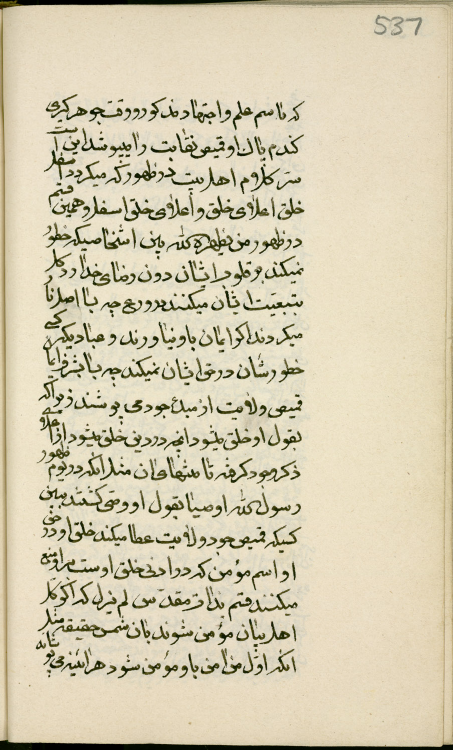 537
که باسم علم و اجتهاد مذکور و وقت جوهر گیری
کندم پاک او قمیص نقابت را بپوشد این است
سر کلام اهل بیت در ظهور که میگردد اسفل
خلق اعلای خلق و اعلای خلق اسفل و همین قسم
در ظهور من یظهره الله بین اشخاصیکه خطور
نمیکند بر قلوب ایشان دون رضای خدا و کل
بتبعیت ایشان میکنند در ورع چه بسا اصل نار
میگردند اگر ایمان باو نیاورند و عبادیکه کسی
خطور شأن در حق ایشان نمیکند چه بسا بشرف ایمان
قمیص ولایت از مبدء جود می پوشند زیرا که
بقول او خلق میشود آنچه در دین خلق میشود از اعلی
ذکر وجود گرفته تا منتهای آن مثل آنکه در یوم ظهور
رسول الله اوصیا بقول او وصی گشتند ببین
کسیکه قمیص جود ولایت عطا میکند خلق او در حق
او اسم مؤمن که در ادنی خلق اوست بر او منع
میکنند قسم بذات مقدس لم یزل که اگر کل
اهل بیان مؤمن شوند بآن شمس حقیقة مثل
آنکه اول من آمن باو مؤمن شود هر آئینه می پوشاند